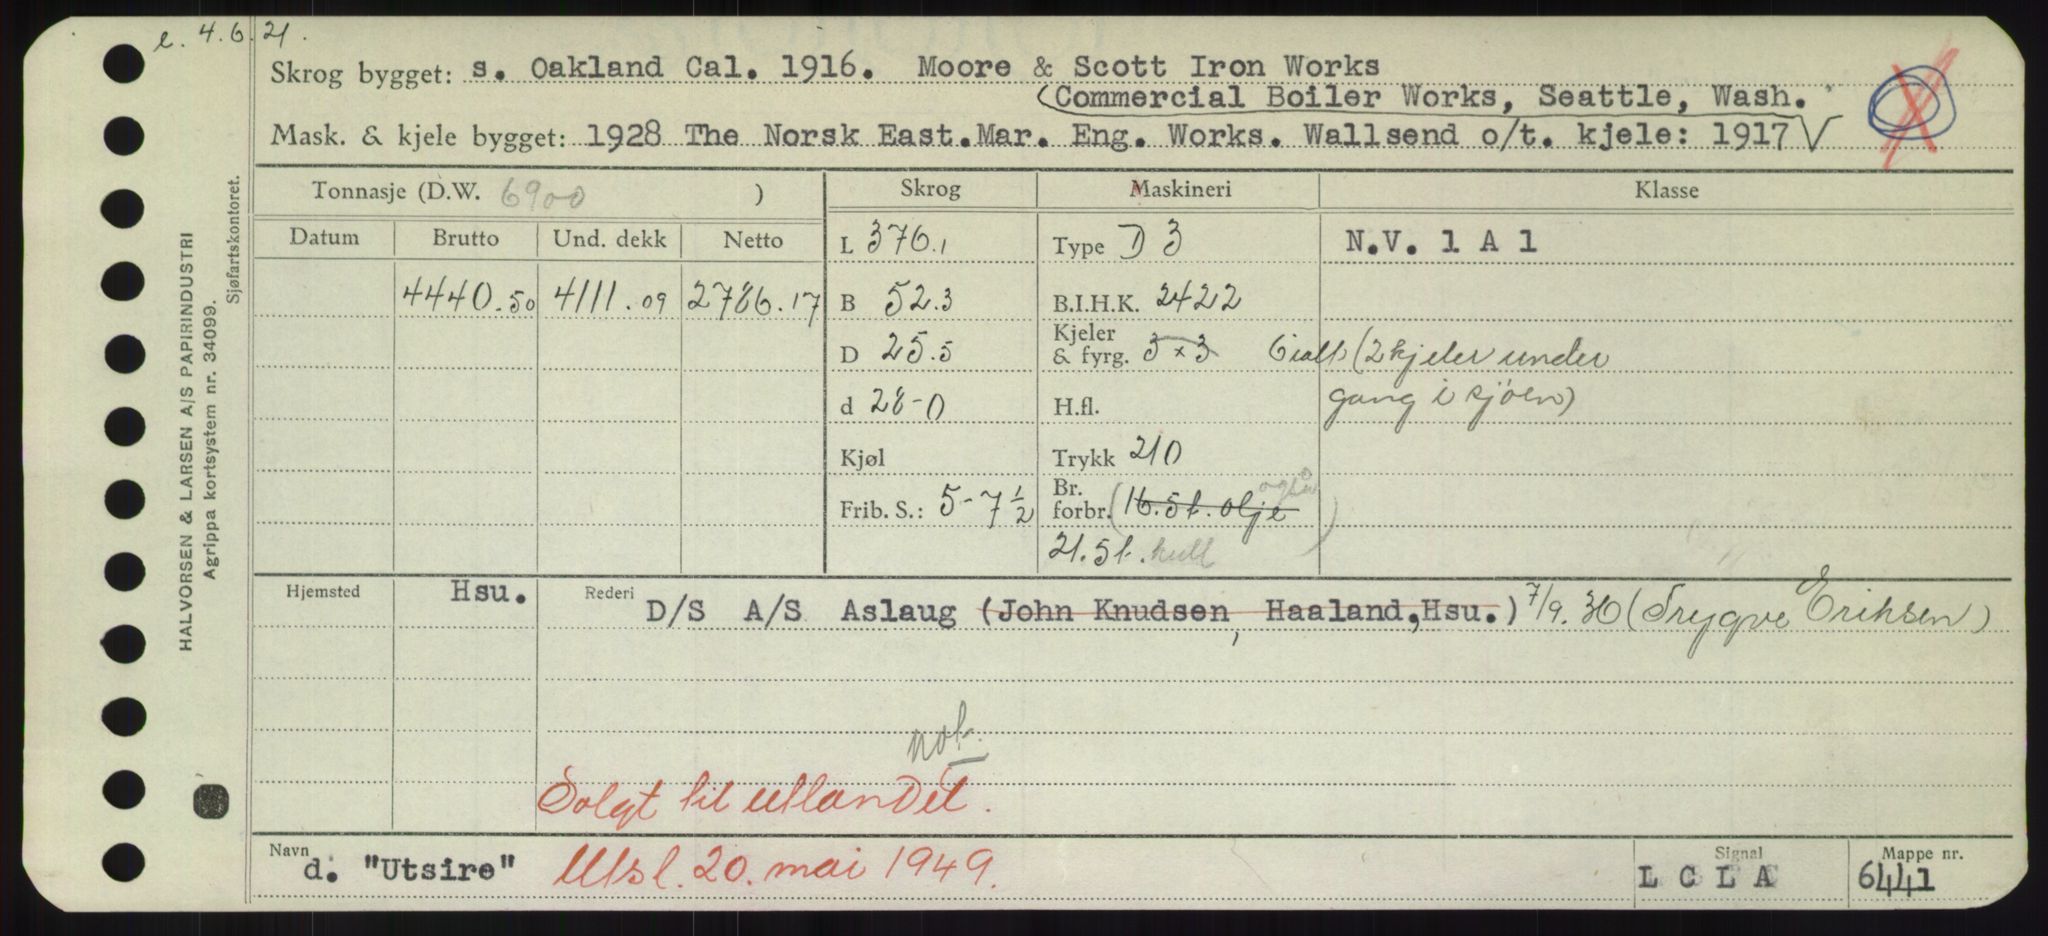 e. 4.6.21.
Skrog bygget: s. Oakland Cal. 1916. Moore & Scott Iron Works
(Commercial Boiler Works, Seattle, Wash.
Mask. & kjele bygget: 1928 The Norsk East.Mar. Eng. Works. Wallsend o/t. kjele: 1917
HALVORSEN & LARSEN A/S PAPIRINDUSTRI
Agrippa kortsystem nr. 34099.
Sjøfartskontoret.
Tonnasje (D.W. 6900 ) Skrog Maskineri Klasse
Datum Brutto Und. dekk Netto L 376.1 Type D 3 N.V. 1 A 1
4440.50 4111.09 2786.17 B 52.3 B.I.H.K. 2422
D 25.5 Kjeler & fyrg. 3 x 3 (2 kjeler under
d 28-0 H.fl. gang i sjøen)
Kjøl Trykk 210
Frib. S.: 5-7 1/2 Br. forbr. (16.5 t. olje også)
21.5 t. kull
Hjemsted Hsu. Rederi D/S A/S Aslaug (John Knudsen, Haaland, Hsu.) 7/9.36 (Trygve Eriksen)
not.
Solgt til utlandet.
Navn d. "Utsire" Utsl. 20. mai 1949. Signal L C L A Mappe nr. 6441